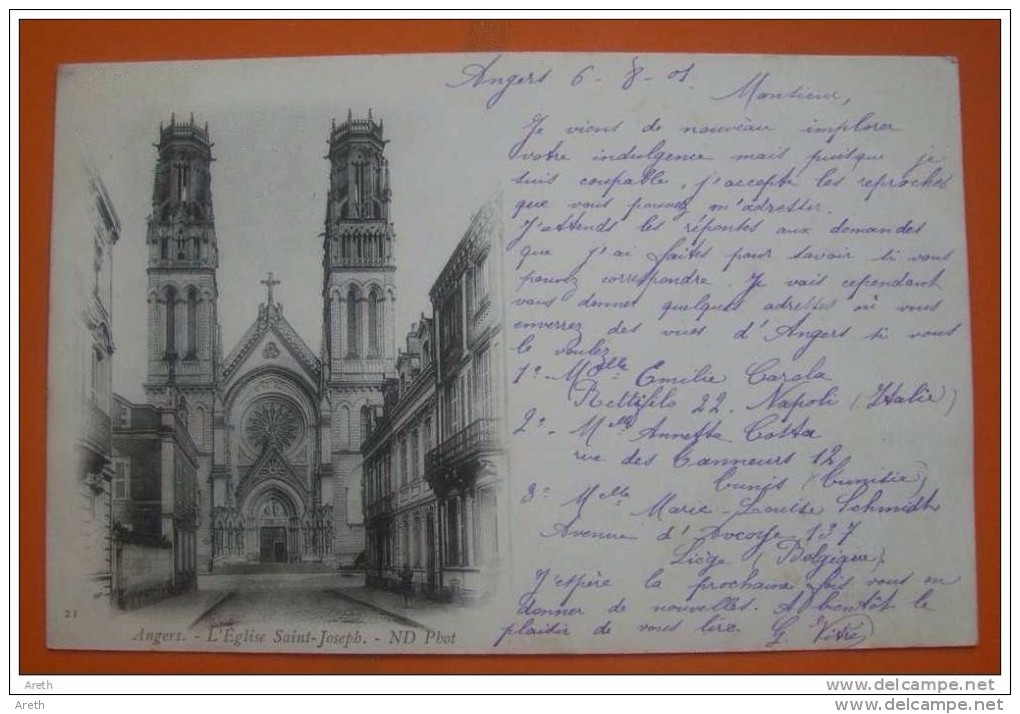 Angers 6-8-01.
Monsieur,
Je viens de nouveau implorer
votre indulgence mais puisque je
suis coupable, j'accepte les reproches
que vous pouvez m'adresser.
J'attends les réponses aux demandes
que j'ai faites pour savoir si vous
pouvez correspondre. Je vais cependant
vous donner quelques adresses où vous
enverrez des vues d'Angers si vous
le voulez
1°- Melle Emilie Carola
Rettifilo 22. Napoli (Italie)
2°- Melle Annetta Costa
rue des Tanneurs 12
Tunis (Tunisie)
3° Melle Marie-Louise Schmidt
Avenue d' 137
Liège (Belgique)
J'espère la prochaine fois vous en
donner de nouvelles. A bientôt le
plaisir de vous lire. G.
21
Angers. - L'Eglise Saint-Joseph. - ND Phot
Areth
Areth
www.delcampe.net
www.delcampe.net